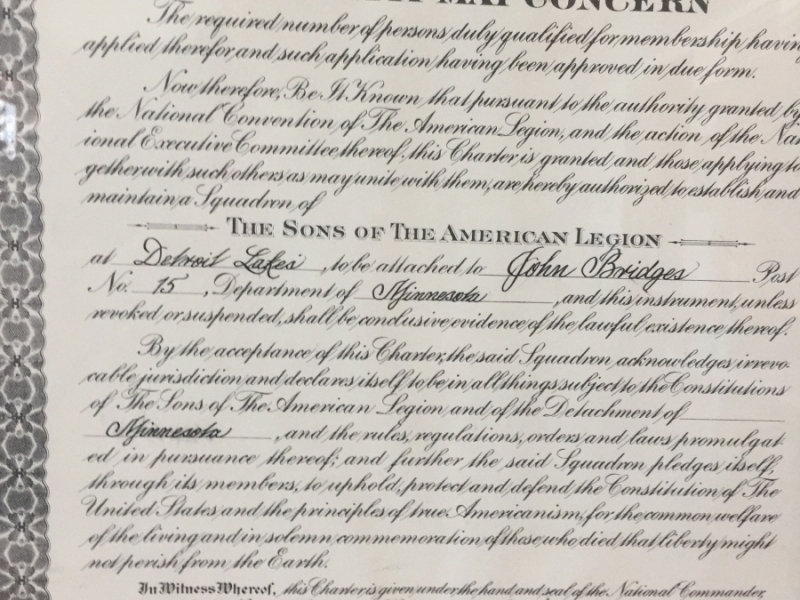 MAY CONCERN
The required number of persons duly qualified for membership having
applied therefor and such application having been approved in due form.
Now therefore, Be It Known that pursuant to the authority granted by
the National Convention of The American Legion, and the action of the Nat
ional Executive Committee thereof, this Charter is granted and those applying to
gether with such others as may unite with them, are hereby authorized to establish and
maintain a Squadron of
THE SONS OF THE AMERICAN LEGION
at Detroit Lakes, to be attached to John Bridges Post
No. 15, Department of Minnesota, and this instrument, unless
revoked or suspended, shall be conclusive evidence of the lawful existence thereof.
By the acceptance of this Charter, the said Squadron acknowledges irrevo-
cable jurisdiction and declares itself to be in all things subject to the Constitutions
of The Sons of The American Legion and of the Detachment of
Minnesota, and the rules, regulations, orders and laws promulgat
ed in pursuance thereof; and further the said Squadron pledges itself,
through its members, to uphold, protect and defend the Constitution of The
United States and the principles of true Americanism, for the common welfare
of the living and in solemn commemoration of those who died that liberty might
not perish from the Earth.
In Witness Whereof, this Charter is given under the hand and seal of the National Commander,